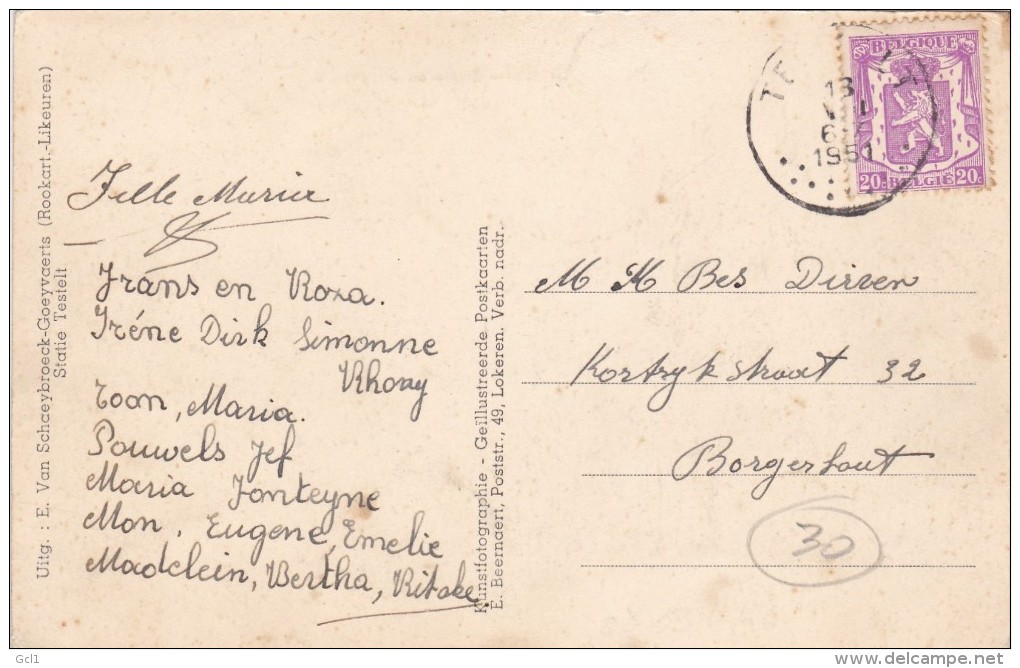 Uitg. : E. Van Schaeybroeck-Goeyvaerts (Rookart.-Likeuren)
Statie Testelt
Jelle Maria
Frans en Roza.
Iréne Dirk Simonne
Rhony
Toon, Maria.
Pouwels Jef
Maria Fonteyne
Mon, Eugene, Emelie
Madelein, Bertha, Ritske.
Kunstfotographie - Geïllustreerde Postkaarten
E. Beernaert, Poststr., 49, Lokeren. Verb. nadr.
BELGIQUE
20c BELGIË 20c
TE LT
13
1951
M M Bes Dirven
Kortryk straat 32
Borgerhout
30
Gcl1
delcampe.net